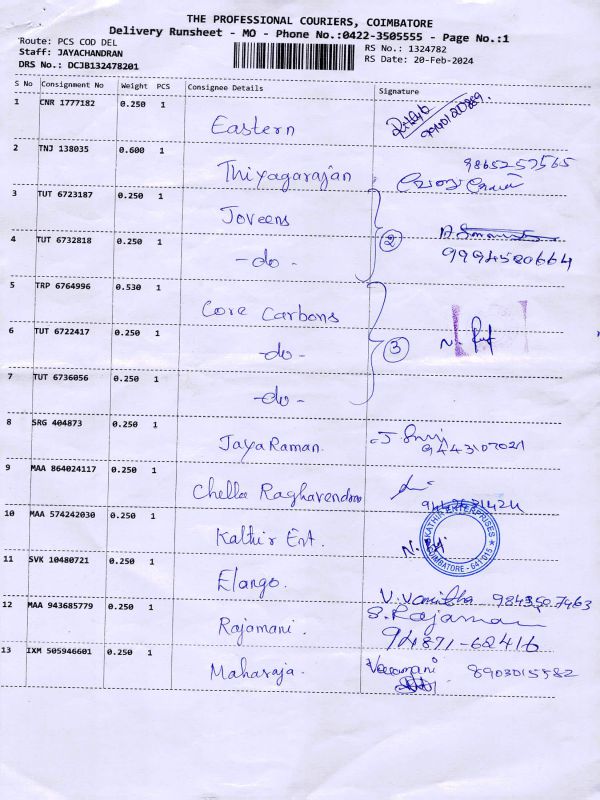 THE PROFESSIONAL COURIERS, COIMBATORE
Delivery Runsheet - MO - Phone No.:0422-3505555 - Page No.:1
Route: PCS COD DEL
RS No.: 1324782
Staff: JAYACHANDRAN
RS Date: 20-Feb-2024
DRS No.: DCJB132478201
S No Consignment No Weight PCS Consignee Details Signature
1 CNR 1777182 0.250 1
Eastern
2 TNJ 138035 0.600 1
Thiyagarajan 9865257565
3 TUT 6723187 0.250 1
Joveens
4 TUT 6732818 0.250 1
-do- 2
9994580664
5 TRP 6764996 0.530 1
Core Carbons
6 TUT 6722417 0.250 1
-do- 3
7 TUT 6736056 0.250 1
-do-
8 SRG 404873 0.250 1
JayaRaman.
9443107021
9 MAA 864024117 0.250 1
Chella Raghavendra
10 MAA 574242030 0.250 1
Kathir Ent.
KATHIR ENTERPRISES
COIMBATORE - 641 015
11 SVK 10480721 0.250 1
Elango.
V. Vanitha 9843507463
12 MAA 943685779 0.250 1
S. Rajamani
Rajamani.
94871-62416
13 IXM 505946601 0.250 1
Maharaja. Veeramani 8903015582